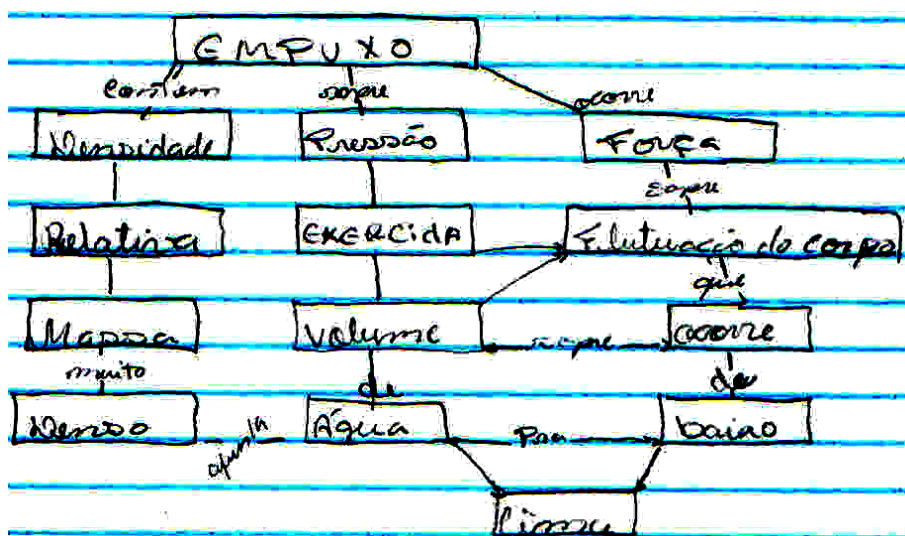 EMPUXO
contem sopre ocorre
Densidade Pressão Força
sopre
Relativa EXERCIDA Flutuação do corpo
que
Massa Volume sopre ocorre
muito de de
Denso Água Pra baixo
afunda
Cima